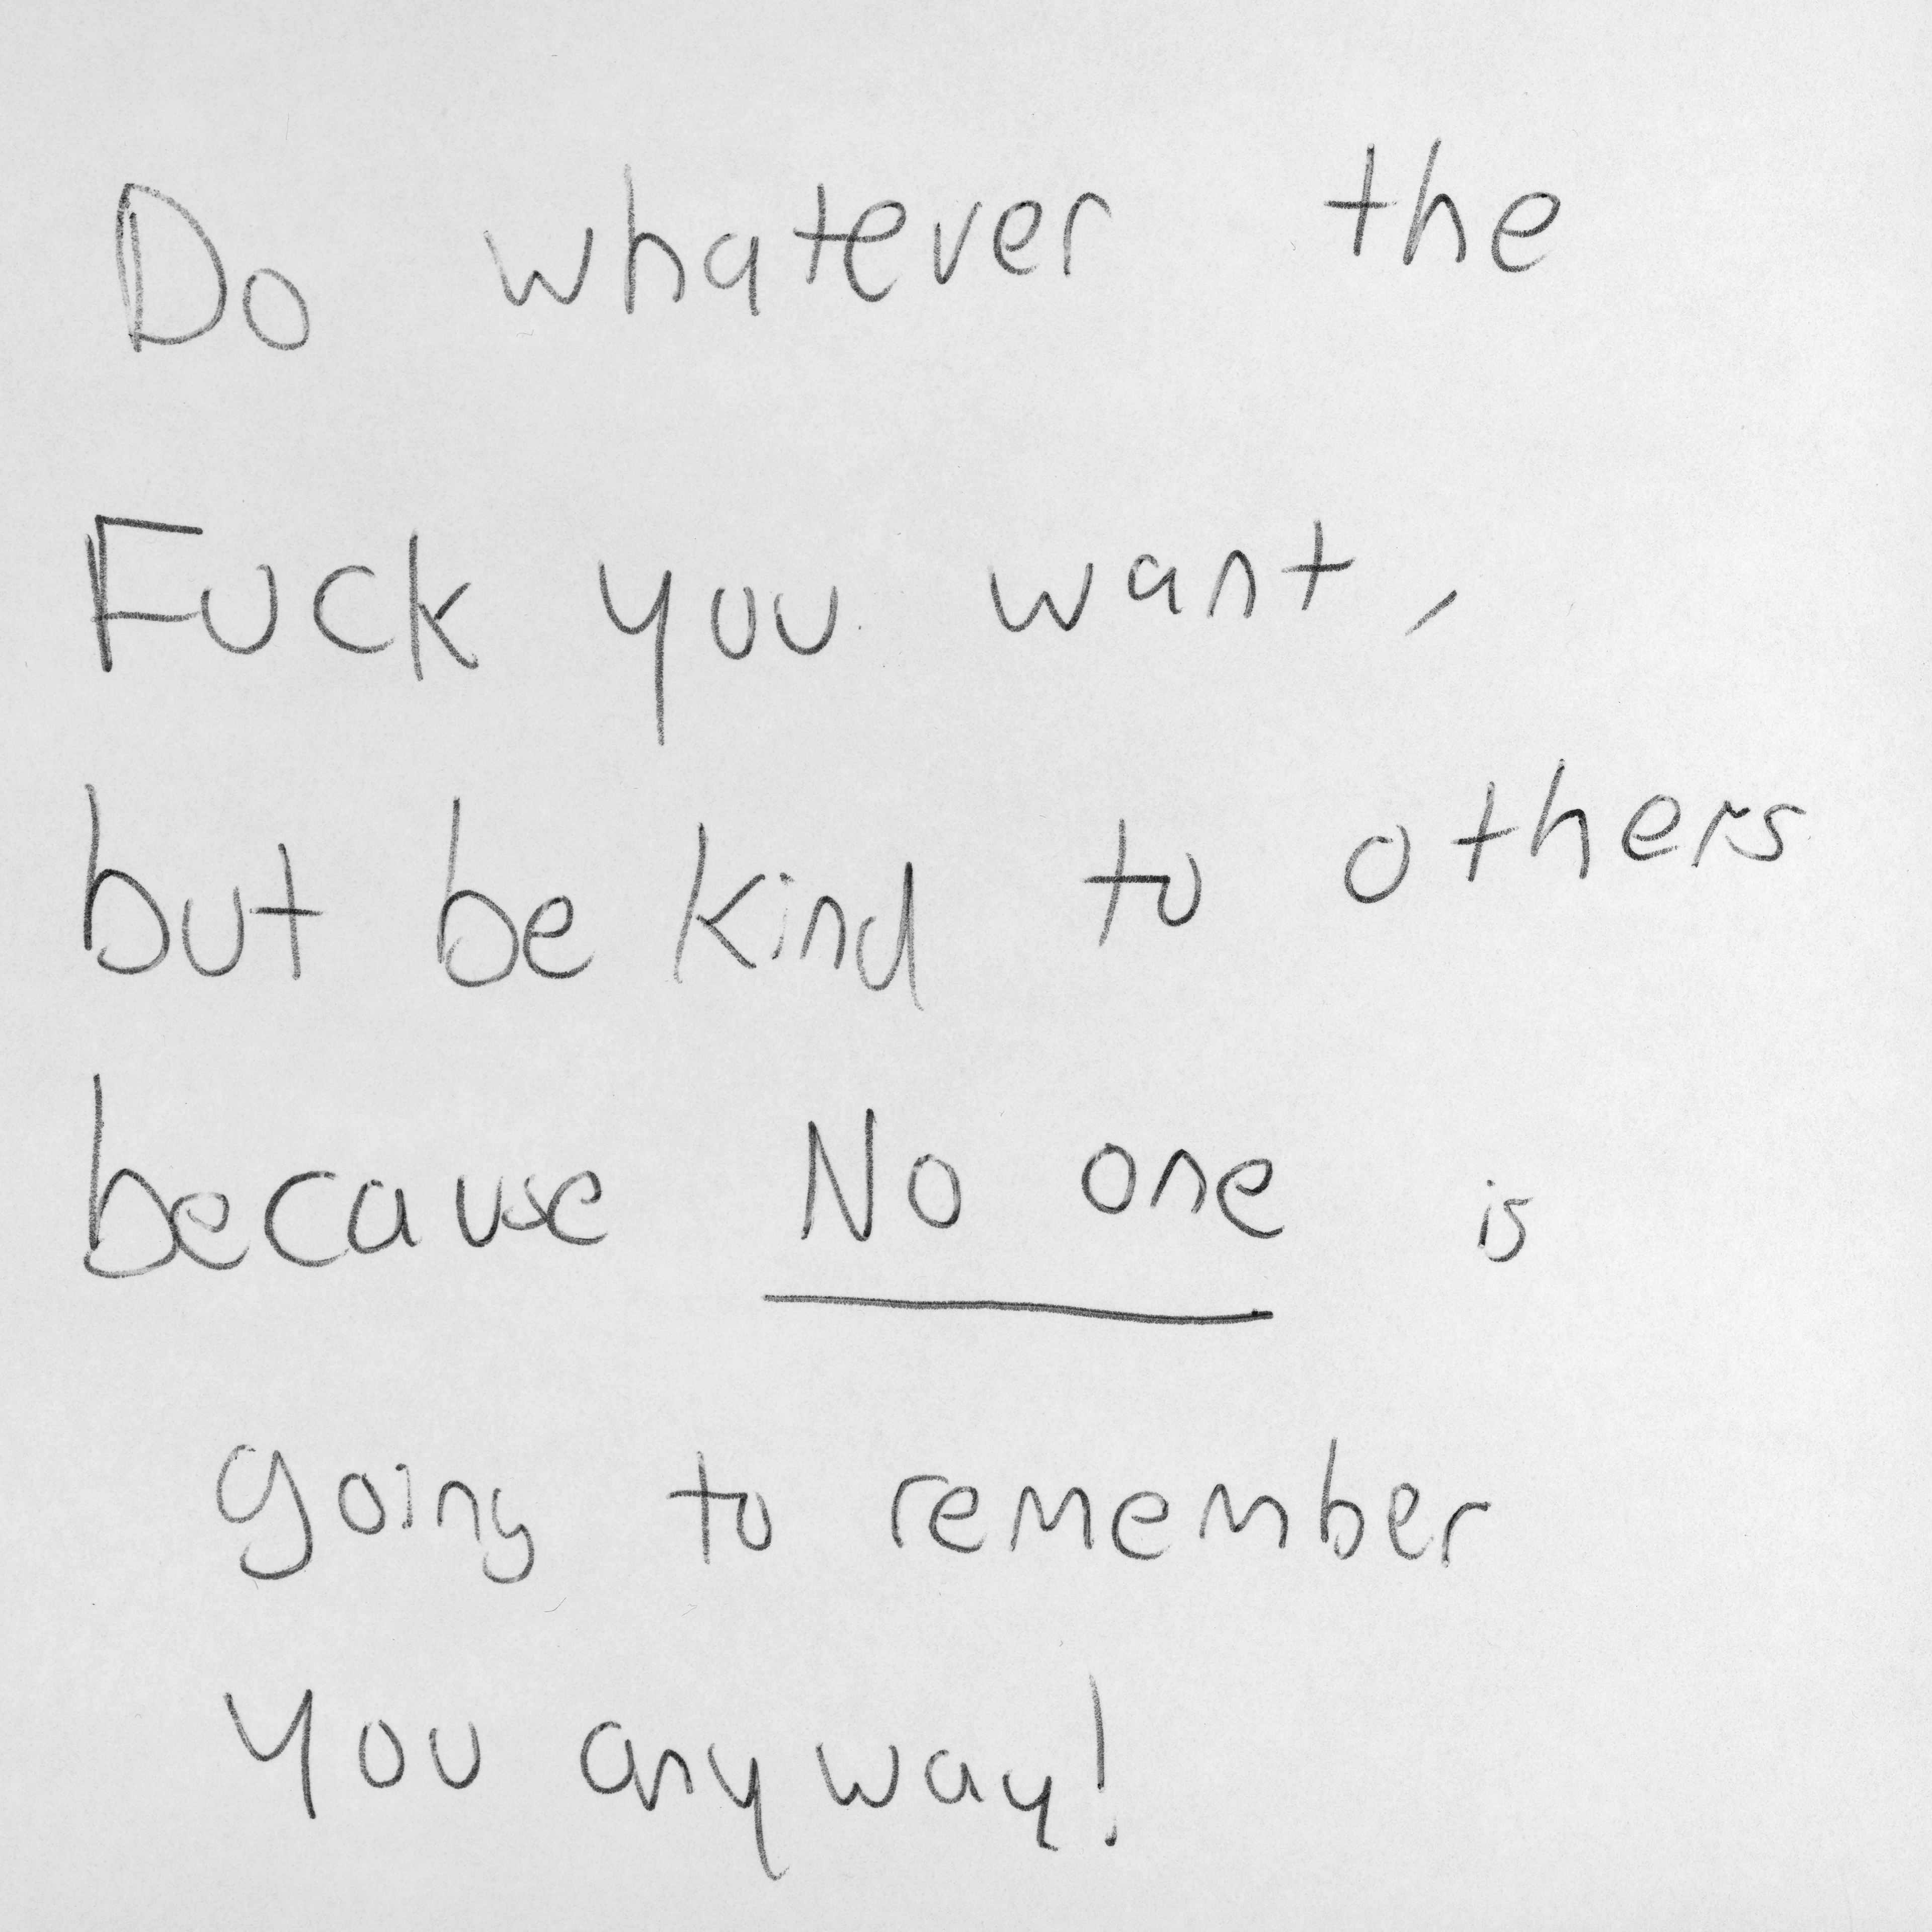 Do whatever the
Fuck you want,
but be kind to others
because No one is
going to remember
You anyway!